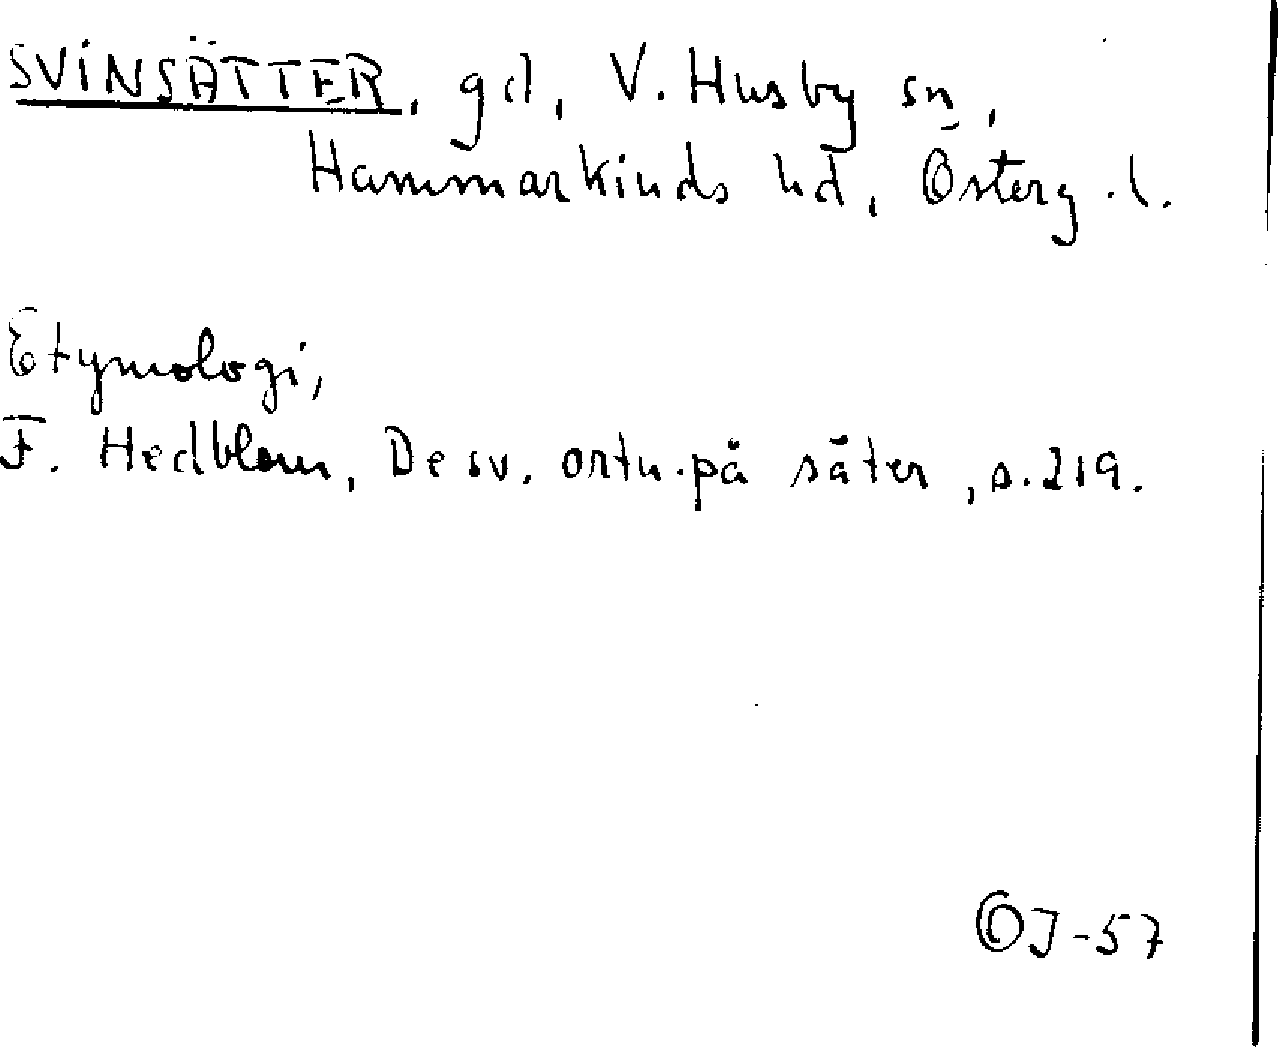 SVINSÄTTER, gd, V. Husby sn,
Hammarkinds hd, Österg.l.
Etymologi,
F. Hedblom, De sv. ortn. på säter, s. 219.
OJ-57